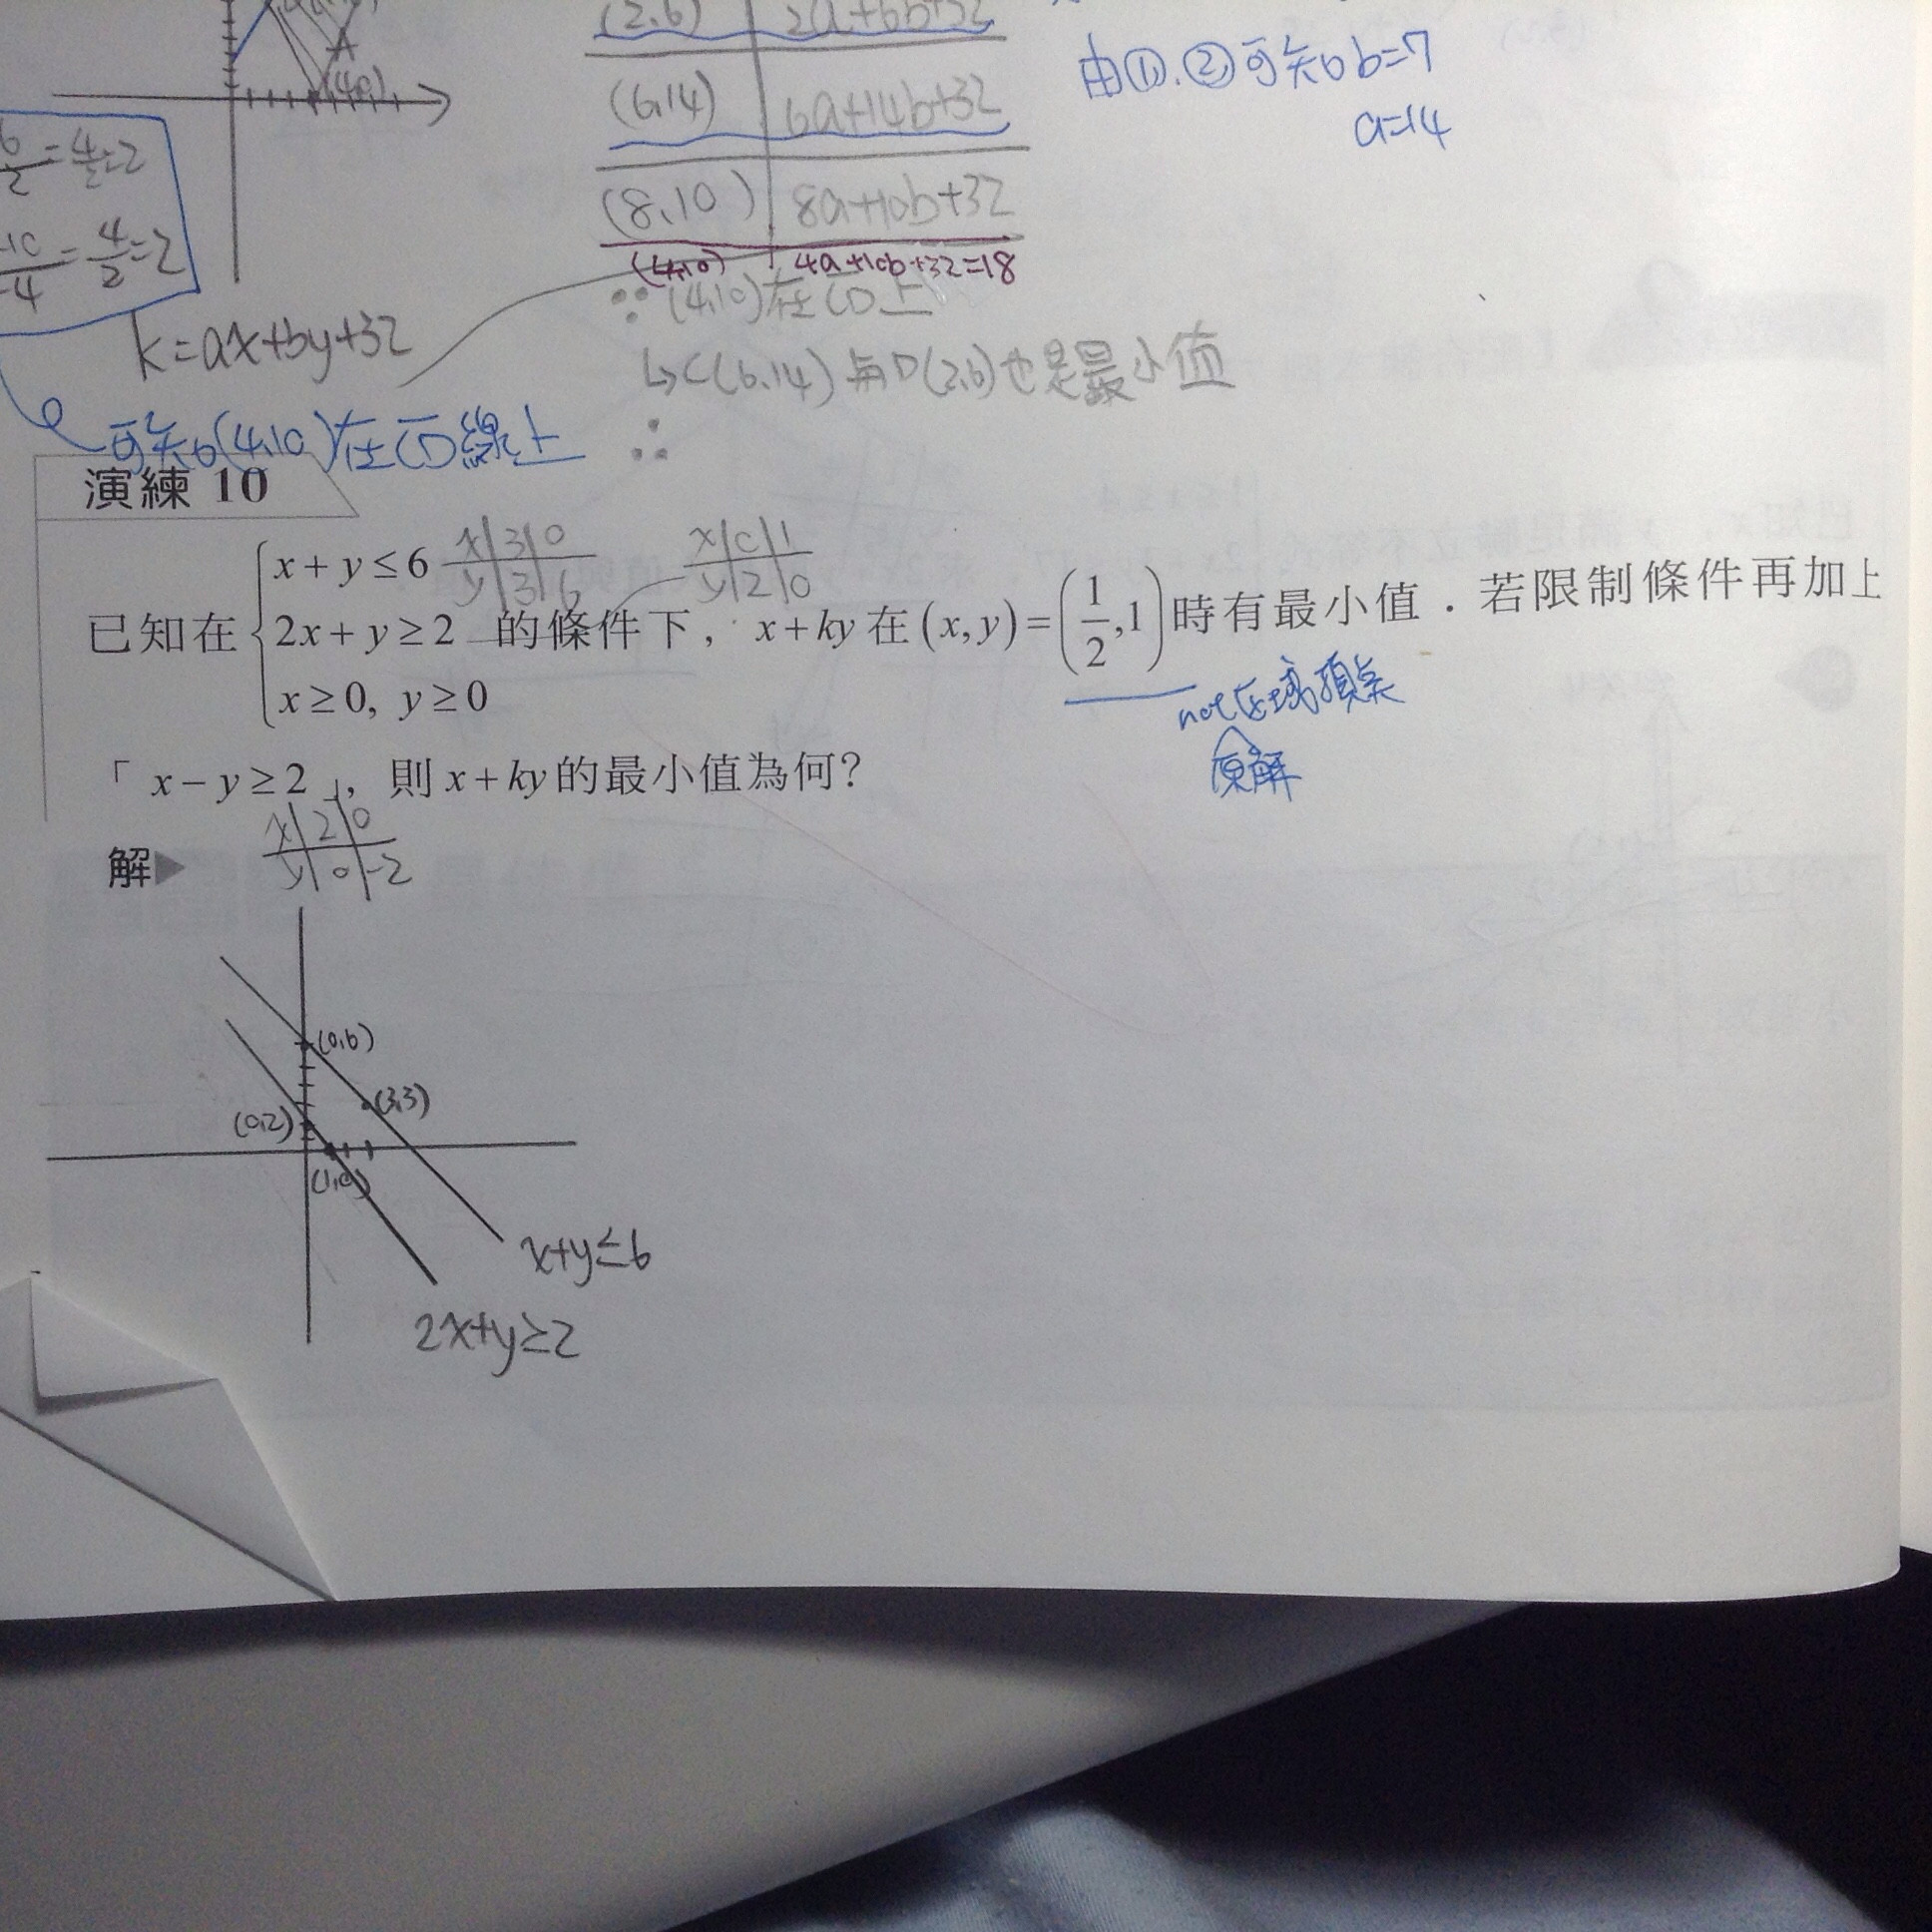 (2,6) 2a+6b+32
(6,14) 6a+14b+32
(8,10) 8a+10b+32
(4,10) 4a+10b+32=18
由①.②可知 b=7
a=14
=4/2=2
=4/2=2
k=ax+by+32
∵(4,10)在CD上
↳C(6,14)與D(2,6)也是最小值
∴
可知(4,10)在CD線上
演練 10
x+y≤6
x 3 0
y 3 6
x 0 1
y 2 0
已知在 2x+y≥2 的條件下, x+ky在(x,y)=(1/2,1)時有最小值.若限制條件再加上
x≥0, y≥0
not區域頂點
原解
「x-y≥2」,則x+ky的最小值為何?
x 2 0
y 0 -2
解▶
(0,6)
(3,3)
(0,2)
(1,0)
x+y≤6
2x+y≥2